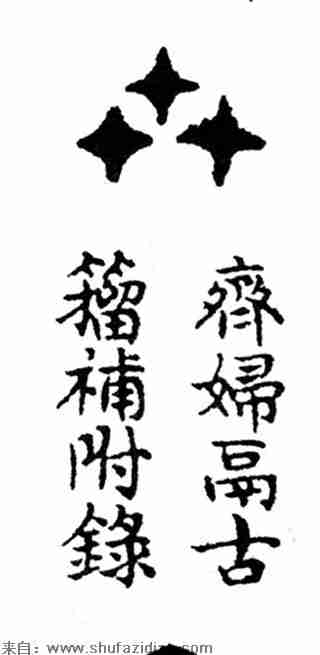 齊婦鬲古
籀補附錄
来自：www.shufazidian.com